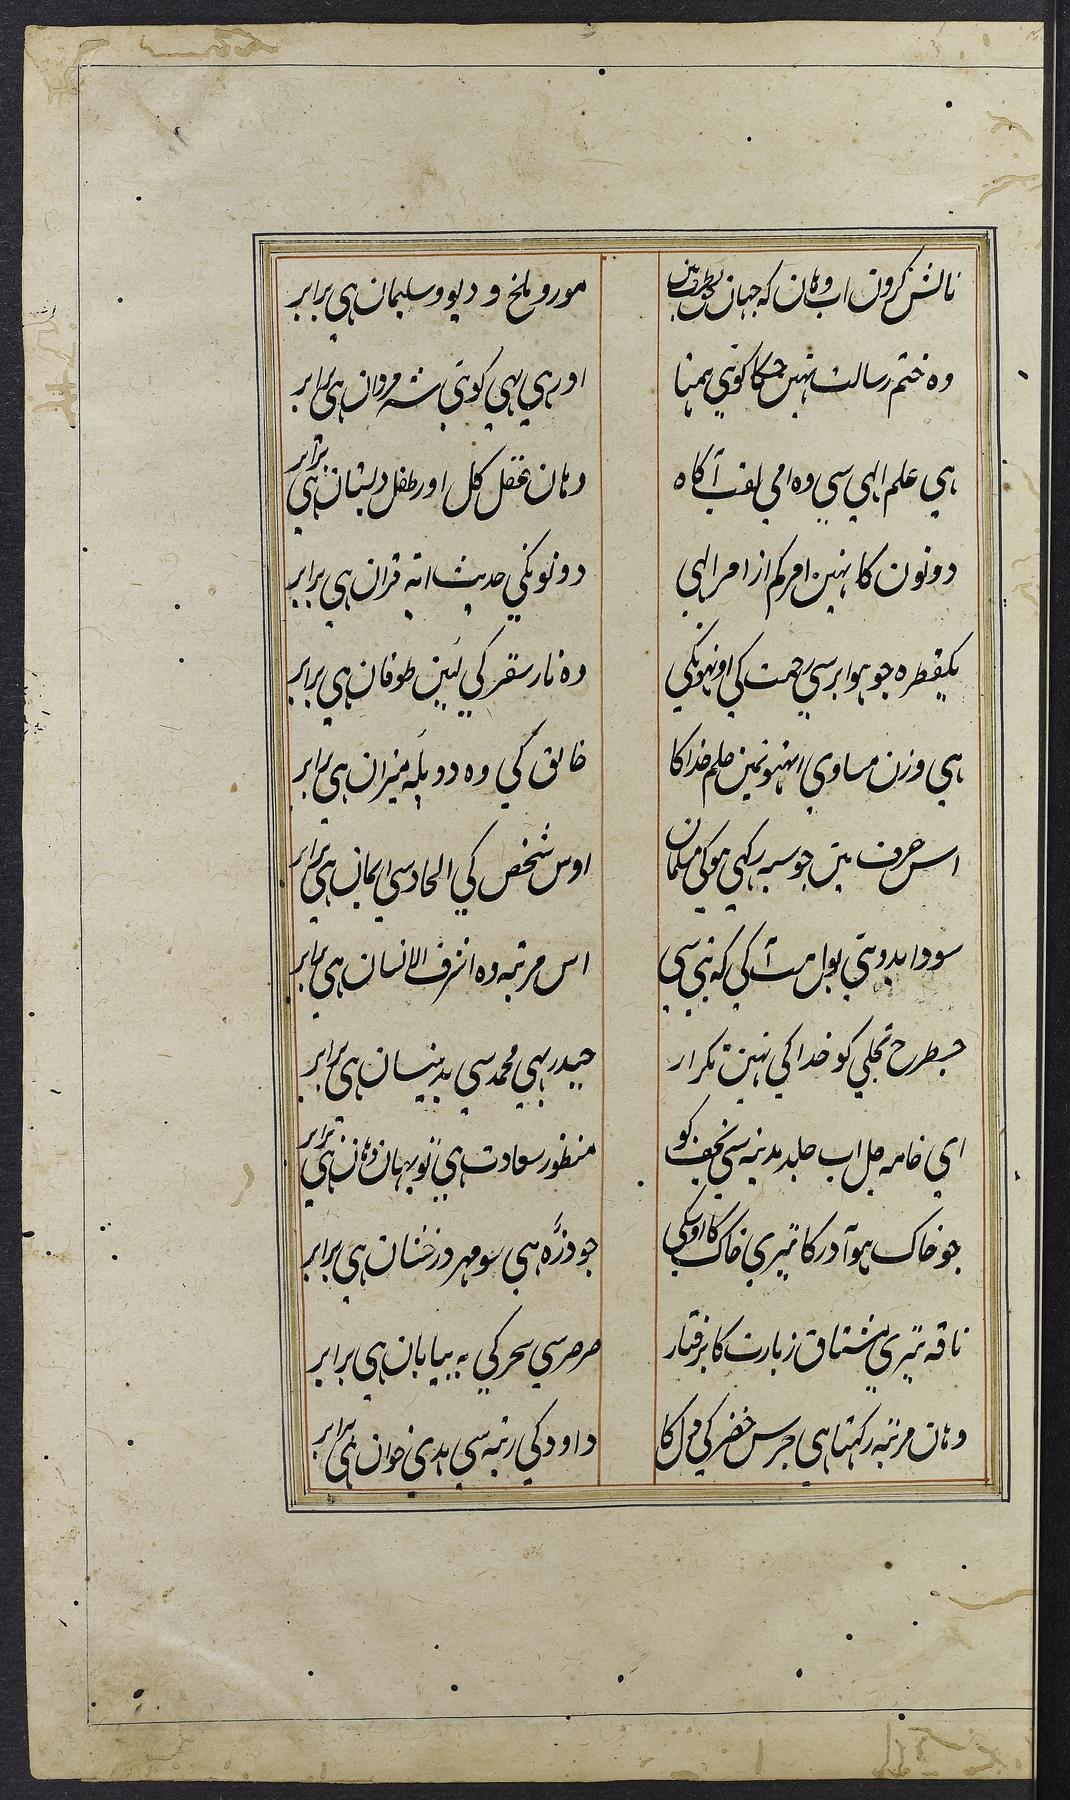 نالش کرون اب وهان که جهان کی نظرون مین
مور و ملخ و دیو و سلیمان هی برابر
وه ختم رسالت نهین جسکا کوئی همتا
اور هی یهی کوئی شه مردان هی برابر
هی علم الهی سی وه امی لقب آگاه
وهان عقل کل اور طفل دبستان هی برابر
دونون کا نهین امر کم از امر الهی
دونونکی حدیث ایه قران هی برابر
یکقطره جو هو ابر سی رحمت کی اونهونکی
وه نار سقر کی لئین طوفان هی برابر
هی وزن مساوی انهونمین حلم خدا کا
خالق کی وه دو پله میزان هی برابر
اس حرف مین جو سر رکهی هوکی مسلمان
اوس شخص کی الحاد سی ایمان هی برابر
سودا بدوئی بول مت آکی که نبی سی
اس مرتبه وه اشرف الانسان هی برابر
جسطرح تجلی کو خدا کی نهین تکرار
حیدر بهی محمد سی بدینسان هی برابر
ای خامه چل اب جلد مدینه سی نجف کو
منظور سعادت هی تو یهان وهان هی برابر
جو خاک هوا در کا تیری خاک کا اوسکی
جو ذرّه هی سو مهر درخشان هی برابر
ناقه تیری مشتاق زیارت کا برفتار
صرصر سی سحر کی به بیابان هی برابر
وهان مرتبه رکهتا هی جرس خضر کی دل کا
داود کی رتبه سی هدی خوان هی برابر